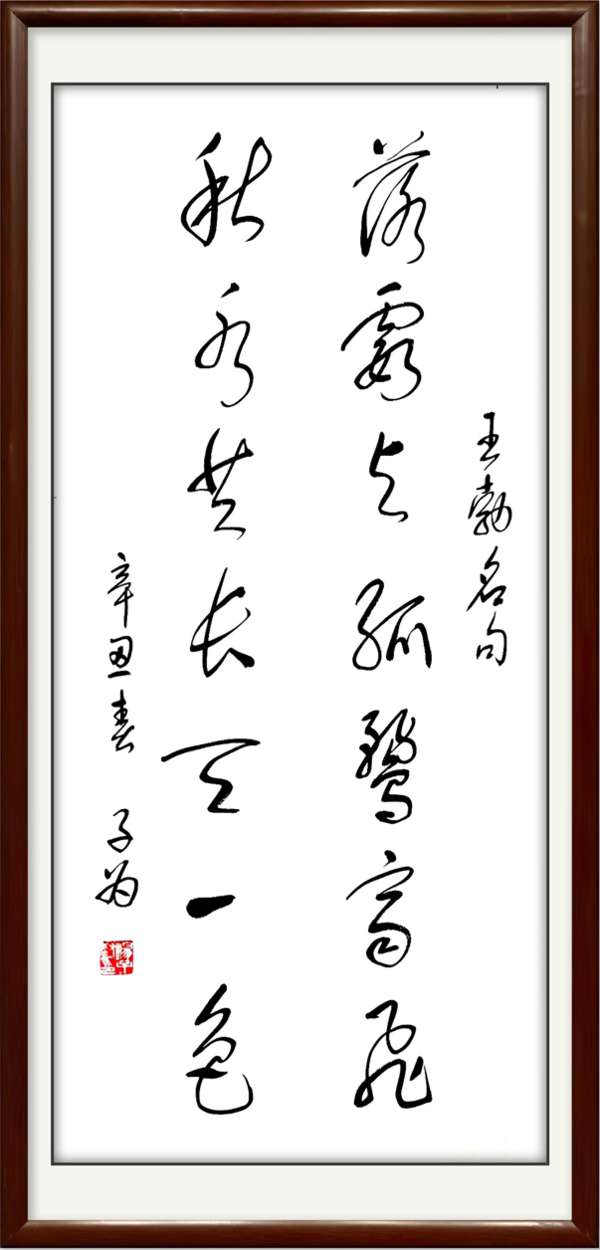 王勃名句
落霞与孤鹜齐飞
秋水共长天一色
辛丑春 子为